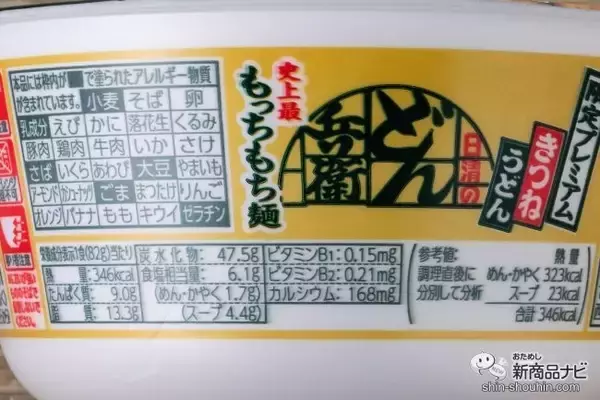 本品には枠内が■で塗られたアレルギー物質
が含まれています。 小麦 そば 卵
乳成分 えび かに 落花生 くるみ
豚肉 鶏肉 牛肉 いか さけ
さば いくら あわび 大豆 やまいも
アーモンド カシューナッツ ごま まつたけ りんご
オレンジ バナナ もも キウイ ゼラチン
史上最
もっちもち麺
日清の
どん
兵衛
限定プレミアム
きつね
うどん
栄養成分表示1食(82g)当たり
熱量: 346kcal
たんぱく質: 9.0g
脂質: 13.3g
炭水化物: 47.5g
食塩相当量: 6.1g
(めん・かやく 1.7g)
(スープ 4.4g)
ビタミンB1: 0.15mg
ビタミンB2: 0.21mg
カルシウム: 168mg
参考値:
調理直後に
分別して分析
熱量
めん・かやく 323kcal
スープ 23kcal
合計 346kcal
おためし
新商品ナビ
shin-shouhin.com